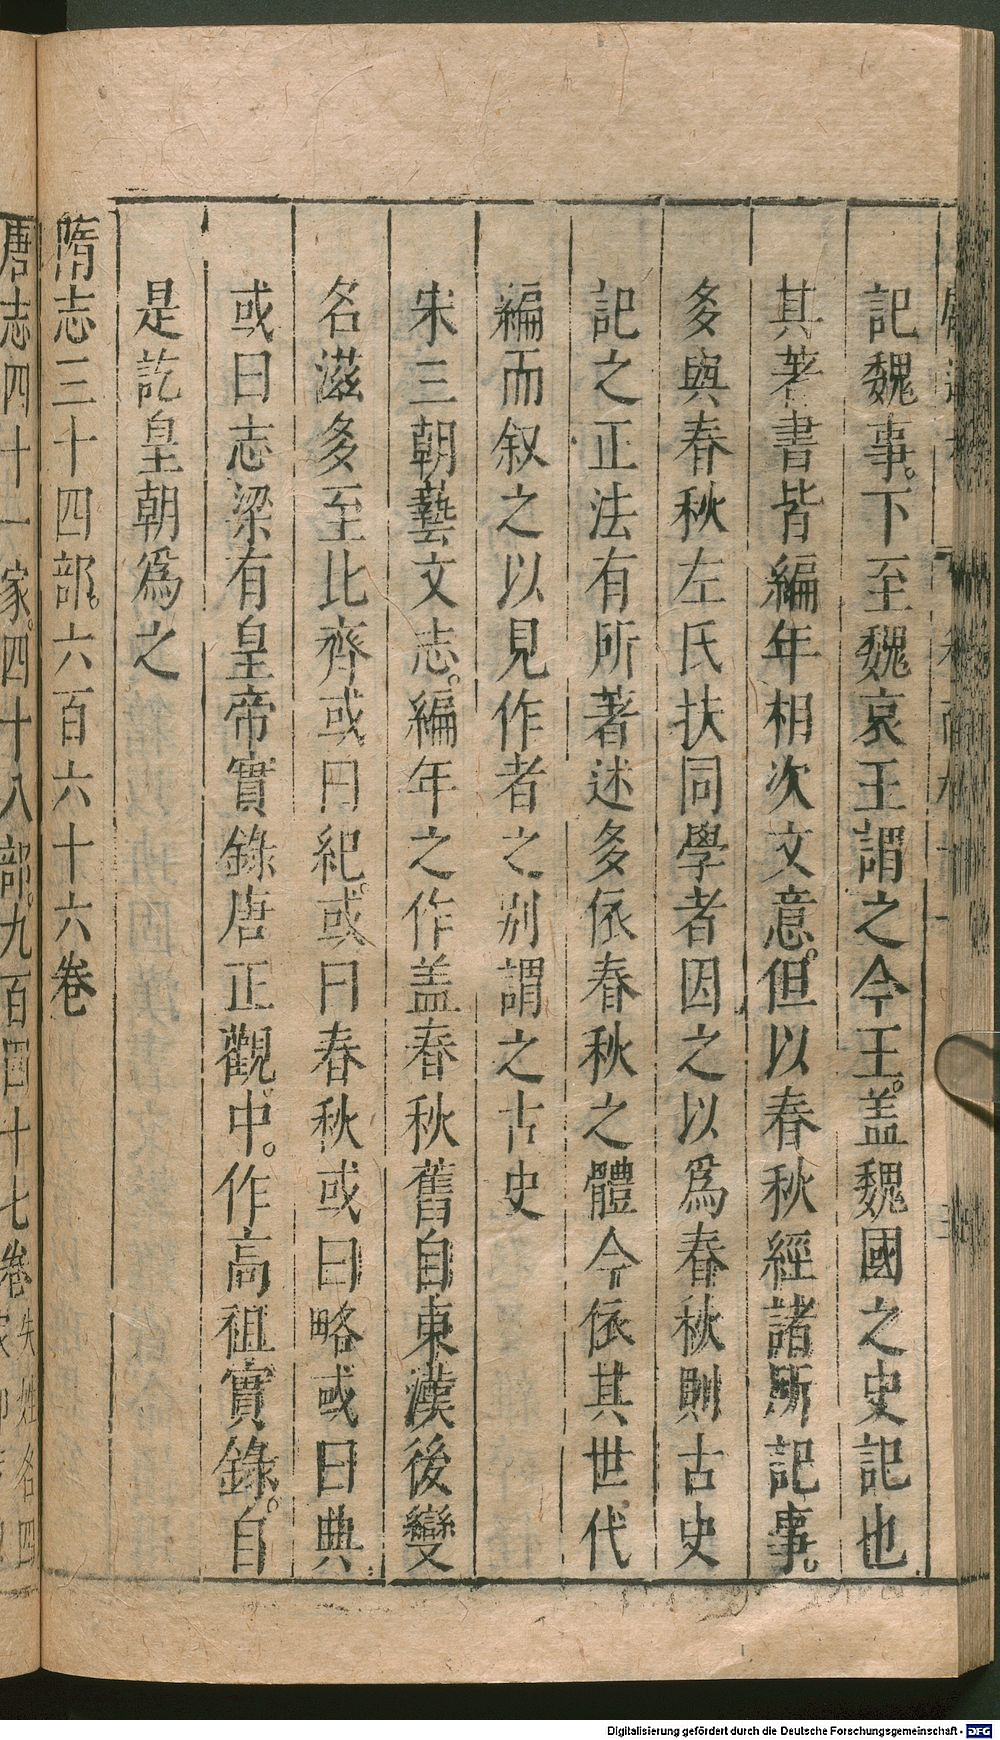 記魏事。下至魏哀王謂之今王。盖魏國之史記也
其著書皆編年相次文意。但以春秋經諸所記事。
多與春秋左氏扶同學者因之以爲春秋則古史
記之正法有所著述多依春秋之體今依其世代
編而叙之以見作者之別謂之古史
宋三朝藝文志。編年之作盖春秋舊自東漢後變
名滋多至北齊或曰紀。或曰春秋或曰略或曰典
或曰志梁有皇帝實錄唐正觀中。作高祖實錄。自
是訖皇朝爲之
隋志三十四部。六百六十六卷
唐志四十一家。四十八部。九百四十七卷失姓名四
Digitalisierung gefördert durch die Deutsche Forschungsgemeinschaft - DFG